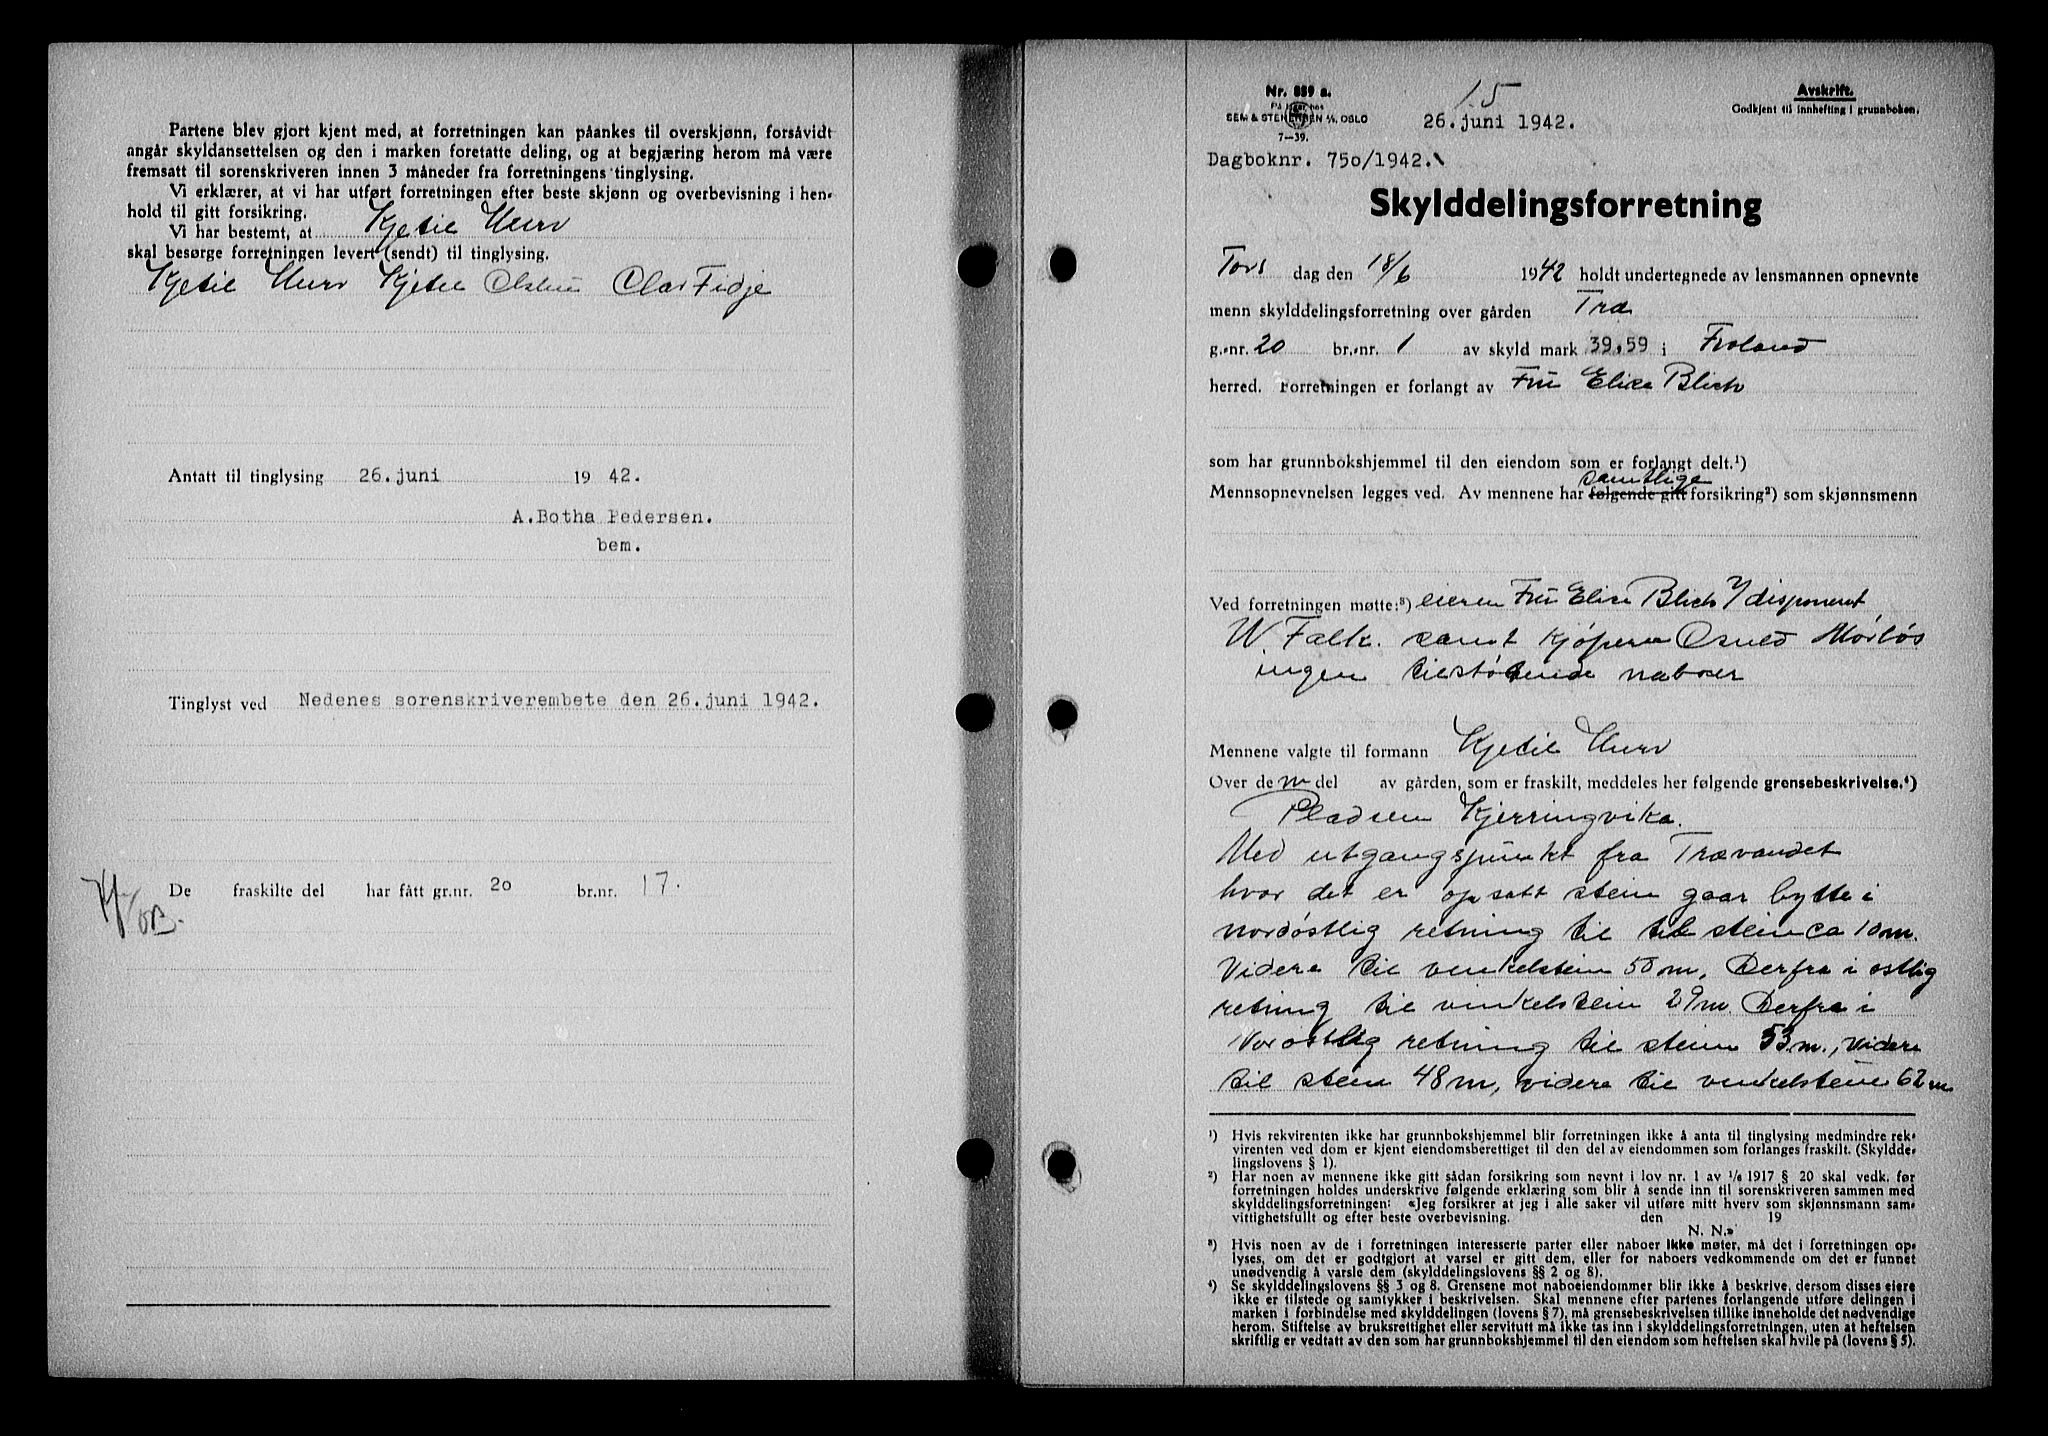 Partene blev gjort kjent med, at forretningen kan påankes til overskjønn, forsåvidt
angår skyldansettelsen og den i marken foretatte deling, og at begjæring herom må være
fremsatt til sorenskriveren innen 3 måneder fra forretningens tinglysing.
Vi erklærer, at vi har utført forretningen efter beste skjønn og overbevisning i hen-
hold til gitt forsikring.
Vi har bestemt, at Kjetil Hurv
skal besørge forretningen levert (sendt) til tinglysing.
Kjetil Hurv Kjetil Olav Fidje
Antatt til tinglysing 26.juni 1942.
A.Botha Pedersen.
bem.
Tinglyst ved Nedenes sorenskriverembete den 26.juni 1942.
De fraskilte del har fått gr.nr. 20 br.nr. 17.
OB.
Nr. 889 a.
På lager hos
SEM & STENERSEN A/S, OSLO
7—39.
15
26.juni 1942.
Avskrift.
Godkjent til innhefting i grunnboken.
Dagboknr. 750/1942.
Skylddelingsforretning
Tors dag den 18/6 1942 holdt undertegnede av lensmannen opnevnte
menn skylddelingsforretning over gården Træ
g.-nr. 20 br.-nr. 1 av skyld mark 39,59 i Froland
herred. Forretningen er forlangt av Fru Elise Blich
som har grunnbokshjemmel til den eiendom som er forlangt delt.¹)
samtlige
Mennsopnevnelsen legges ved. Av mennene har følgende gitt forsikring²) som skjønnsmenn
Ved forretningen møtte:³) eieren Fru Elise Blich v/disponent
W. Falk. samt kjøperen Osuld Mørløs
ingen tilstøtende naboer
Mennene valgte til formann Kjetil Hurv
Over de m del av gården, som er fraskilt, meddeles her følgende grensebeskrivelse.⁴)
Pladsen Kjerringvika.
Med utgangspunkt fra Trævandet
hvor det er opsatt stein gaar bytte i
nordøstlig retning til til stein ca 10 m.
Videre til venkelstein 50 m, Derfra i ostlig
retning til vinkelstein 29 m. Derfra i
Norostlig retning til stein 53 m., videre
til stein 48 m, videre til venkelstein 62 m
¹) Hvis rekvirenten ikke har grunnbokshjemmel blir forretningen ikke å anta til tinglysing medmindre rek-
virenten ved dom er kjent eiendomsberettiget til den del av eiendommen som forlanges fraskilt. (Skyldde-
lingslovens § 1).
²) Har noen av mennene ikke gitt sådan forsikring som nevnt i lov nr. 1 av 1/6 1917 § 20 skal vedk. før
forretningen holdes underskrive følgende erklæring som blir å sende inn til sorenskriveren sammen med
skylddelingsforretningen: «Jeg forsikrer at jeg i alle saker vil utføre mitt hverv som skjønnsmann sam-
vittighetsfullt og efter beste overbevisning. den 19
N. N.»
³) Hvis noen av de i forretningen interesserte parter eller naboer ikke møter, må det i forretningen op-
lyses, om det er godtgjort at varsel er gitt dem, eller for naboers vedkommende om det er funnet
unødvendig å varsle dem (skylddelingslovens §§ 2 og 8).
⁴) Se skylddelingslovens §§ 3 og 8. Grensene mot naboeiendommer blir ikke å beskrive, dersom disses eiere
ikke er tilstede og samtykker i beskrivelsen. Skal mennene efter partenes forlangende utføre delingen i
marken i forbindelse med skylddelingen (lovens § 7), må grensebeskrivelsen tillike inneholde det nødvendige
herom. Stiftelse av bruksrettighet eller servitutt må ikke tas inn i skylddelingsforretningen, uten at heftelsen
skriftlig er vedtatt av den som har grunnbokshjemmel til den eiendom som heftelsen skal hvile på (lovens § 5).